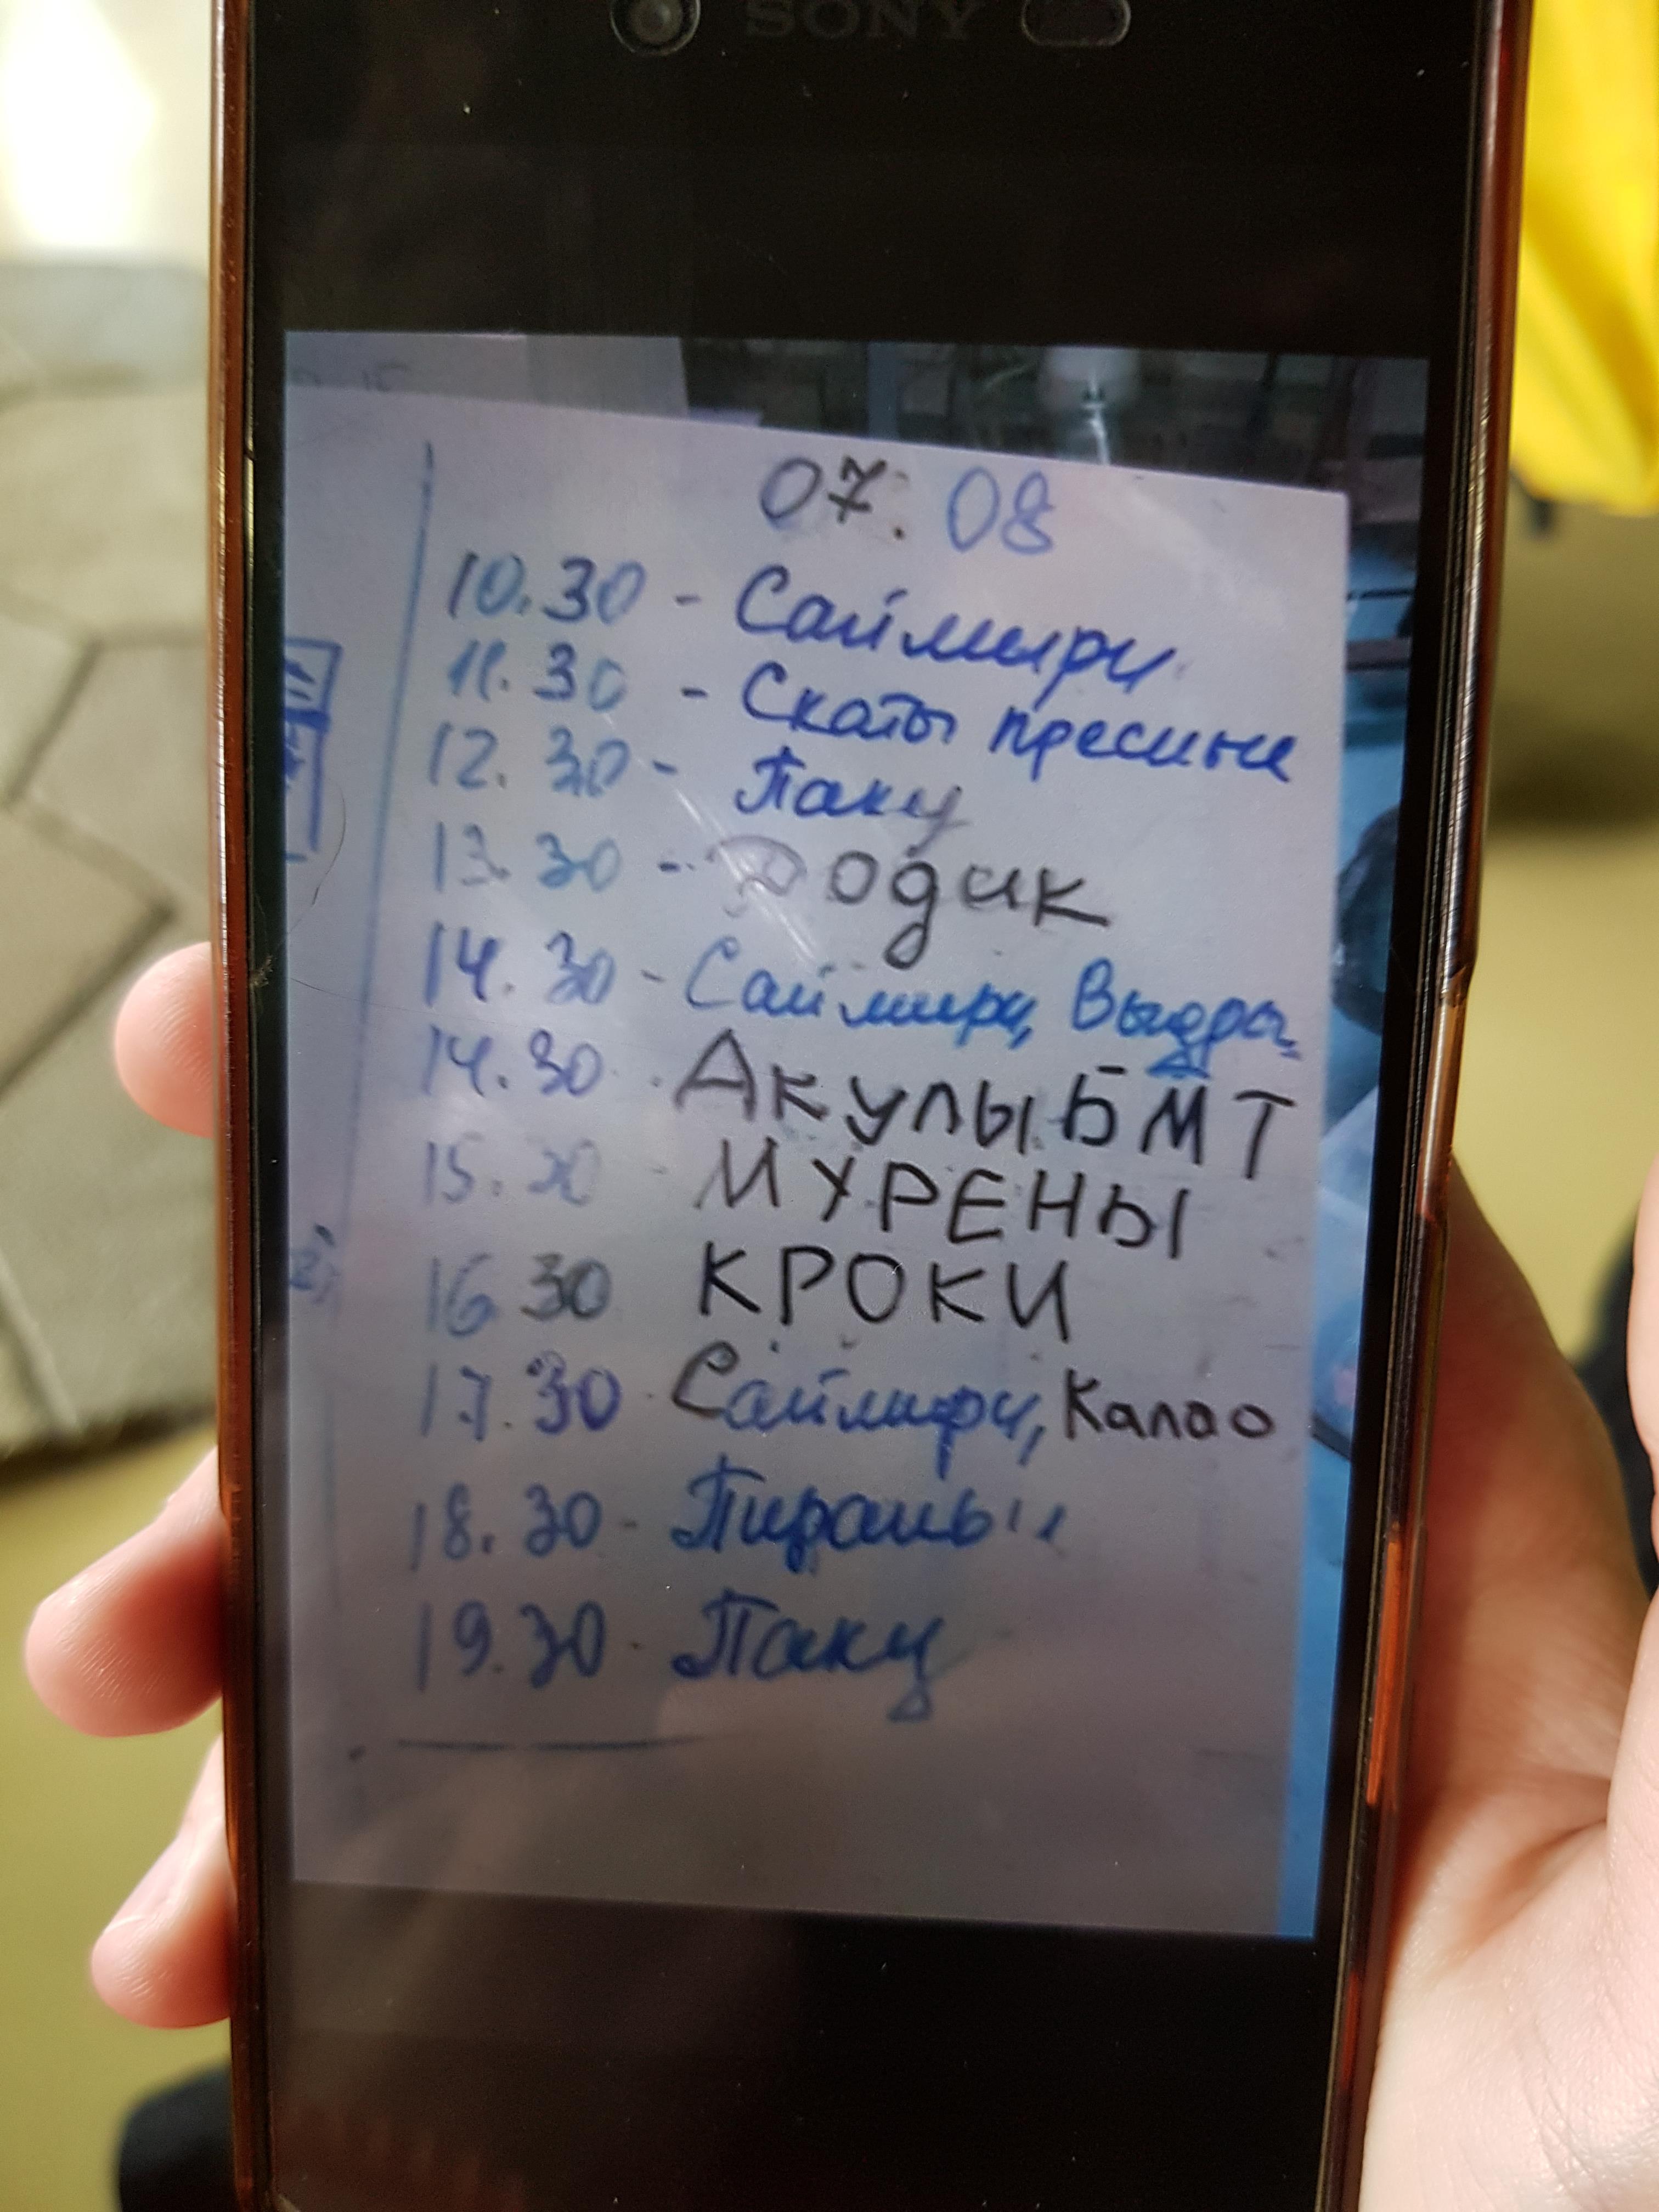 SONY
07.08
10.30 - Саймири
11.30 - Скаты пресные
12.30 - Паку
13.30 - Додик
14.30 - Саймири, Выдры
14.30 - Акулы БМТ
15.30 - МУРЕНЫ
16 30 КРОКИ
17.30 - Саймири, Калао
18.30 - Пираньи
19.30 - Паку